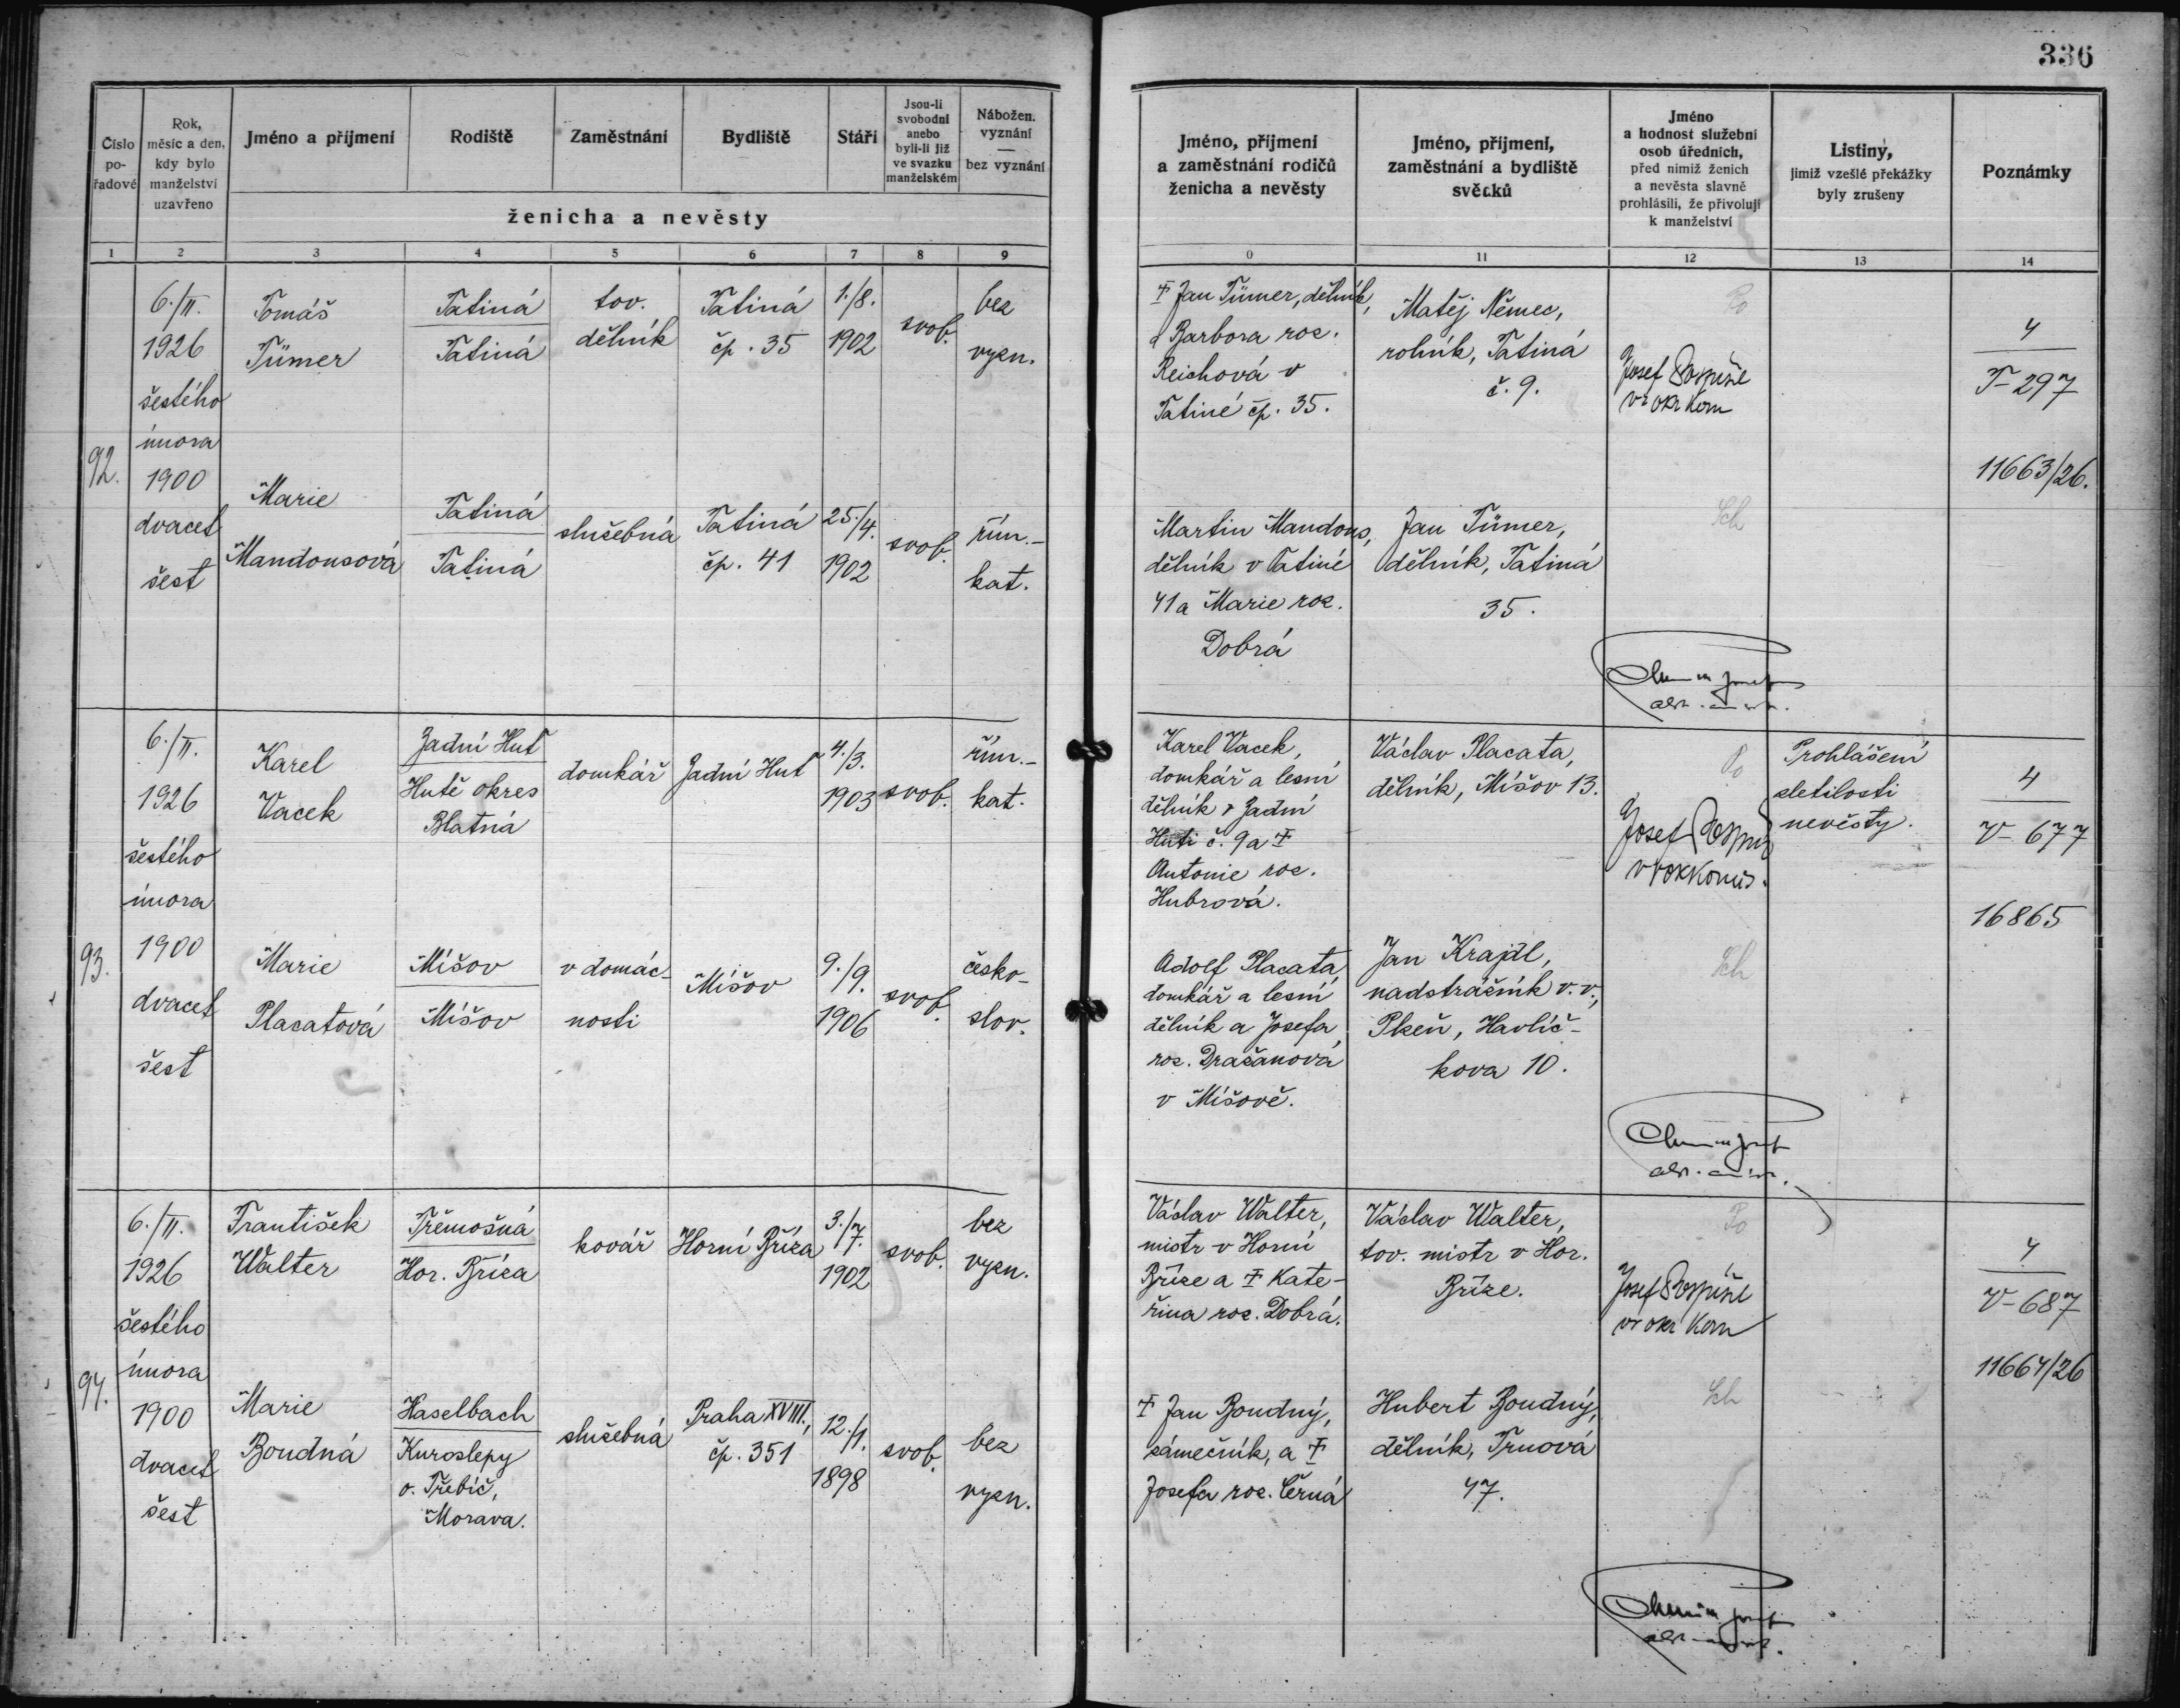 336
Číslo pořadové
Rok, měsíc a den, kdy bylo manželství uzavřeno
Jméno a příjmení
Rodiště
Zaměstnání
Bydliště
Stáří
Jsou-li svobodni anebo byli-li již ve svazku manželském
Nábožen. vyznání — bez vyznání
ženicha a nevěsty
Jméno, příjmení a zaměstnání rodičů ženicha a nevěsty
Jméno, příjmení, zaměstnání a bydliště svědků
Jméno a hodnost služební osob úředních, před nimiž ženich a nevěsta slavně prohlásili, že přivolují k manželství
Listiny, jimiž vzešlé překážky byly zrušeny
Poznámky
1 2 3 4 5 6 7 8 9 0 11 12 13 14
92.
6./II.
1926
šestého
února
1900
dvacet
šest
Tomáš
Tümer
Tatiná
Tatiná
tov.
dělník
Tatiná
čp. 35
1./8.
1902
svob.
bez
vyzn.
Jan Tümer, dělník,
Barbora roz.
Reichová v
Tatiné čp. 35.
Matěj Němec,
rolník, Tatiná
č. 9.
Po
Josef Pospíšil
4
T-297
11663/26.
Marie
Mandousová
Tatiná
Tatiná
služebná
Tatiná
čp. 41
25./4.
1902
svob.
řím.-
kat.
Martin Mandous,
dělník v Tatiné
41 a Marie roz.
Dobrá
Jan Tümer,
dělník, Tatiná
35.
Sch
93.
6./II.
1926
šestého
února
1900
dvacet
šest
Karel
Vacek
Zadní Huť
Hutě okres
Blatná
domkář
Zadní Huť
4./3.
1903
svob.
řím.-
kat.
Karel Vacek,
domkář a lesní
dělník v Zadní
Huti č. 9 a ‡
Antonie roz.
Hubrová.
Václav Placata,
dělník, Míšov 13.
Po
Josef Pospíšil
Prohlášení
zletilosti
nevěsty.
4
V-677
16865
Marie
Placatová
Míšov
Míšov
v domác-
nosti
Míšov
9./9.
1906
svob.
česko-
slov.
Adolf Placata,
domkář a lesní
dělník a Josefa,
roz. Dražanová
v Míšově.
Jan Krajdl,
nadstrážník v. v.,
Plzeň, Havlíč-
kova 10.
Sch
94.
6./II.
1926
šestého
února
1900
dvacet
šest
František
Walter
Třemošná
Hor. Bříza
kovář
Horní Bříza
3./7.
1902
svob.
bez
vyzn.
Václav Walter,
mistr v Horní
Bříze a ‡ Kate-
řina roz. Dobrá.
Václav Walter,
tov. mistr v Hor.
Bříze.
Po
Josef Pospíšil
4
V-687
11664/26
Marie
Boudná
Haselbach
Kuroslepy
o. Třebíč,
Morava.
služebná
Praha XVIII.,
čp. 351
12./1.
1898
svob.
bez
vyzn.
‡ Jan Boudný,
zámečník, a ‡
Josefa roz. Černá
Hubert Boudný,
dělník, Trnová
47.
Sch